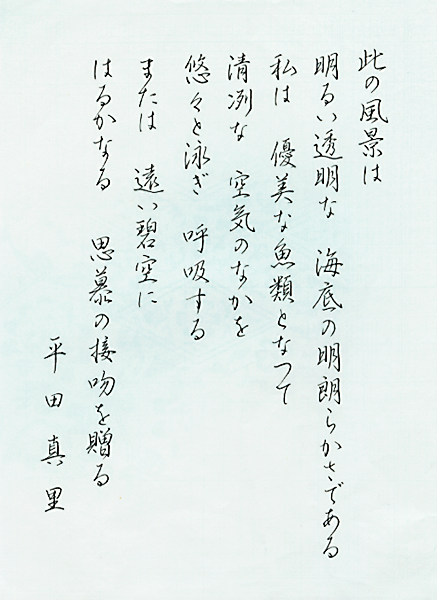 此の風景は
明るい透明な　海底の明朗らかさである
私は　優美な魚類となつて
清冽な　空気のなかを
悠々と泳ぎ　呼吸する
または　遠い碧空に
はるかなる　思慕の接吻を贈る
平田真里